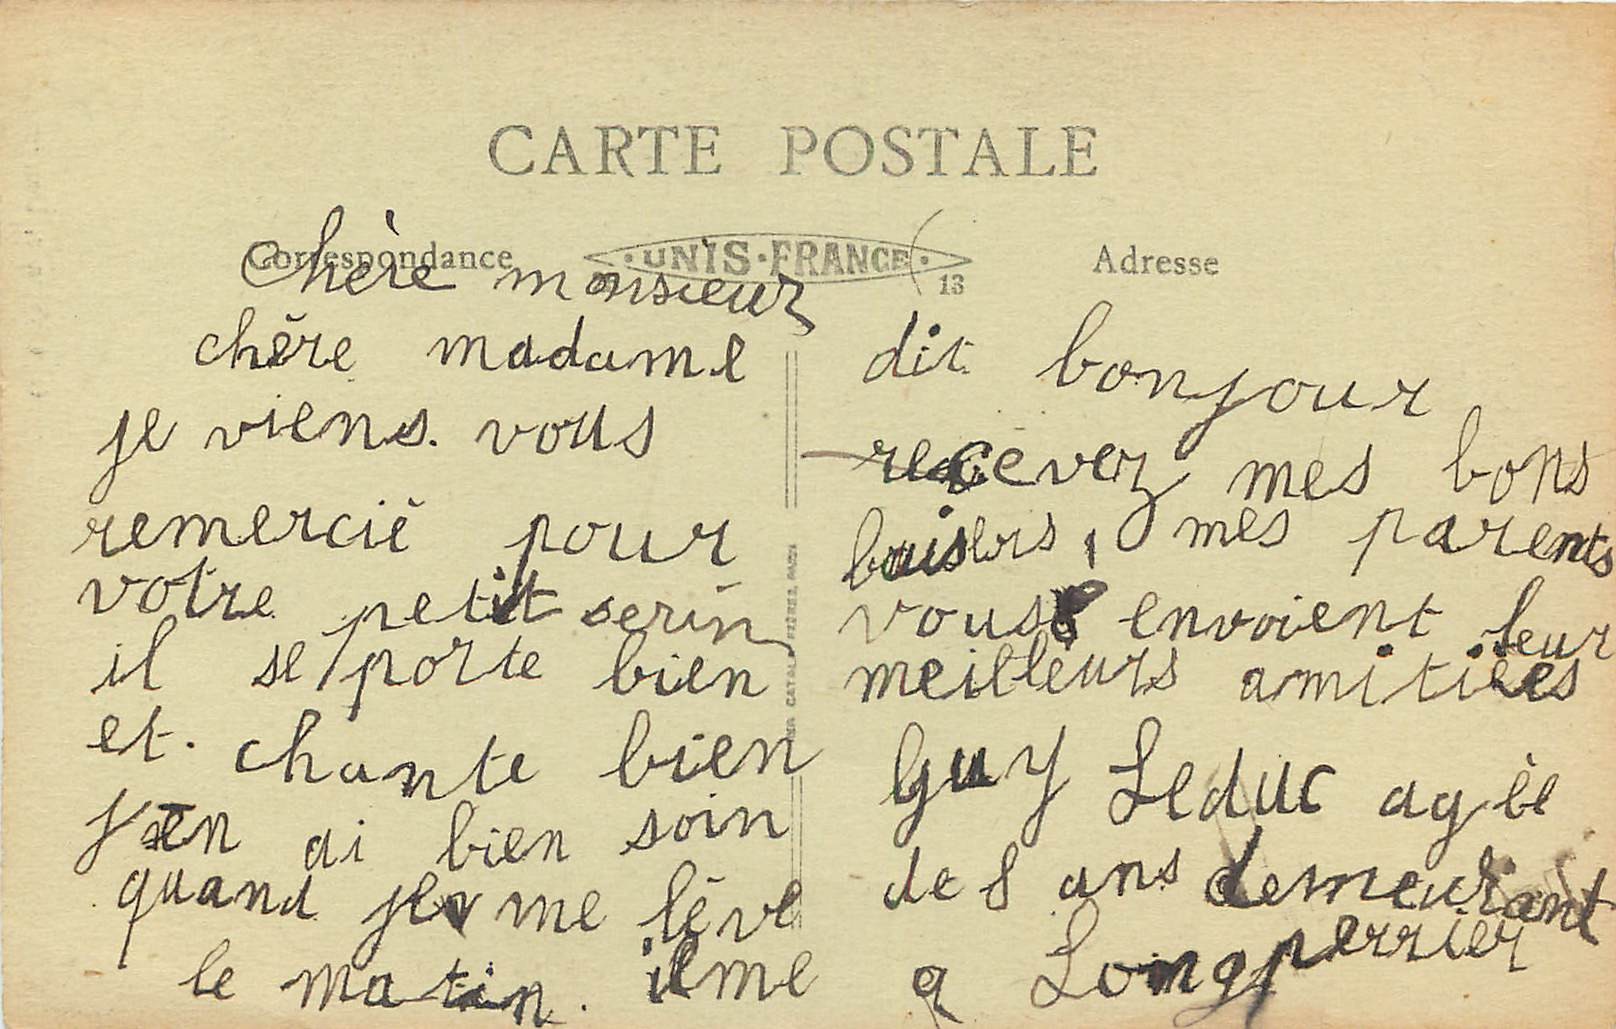 CARTE POSTALE
Correspondance
UNIS-FRANCE
13
Adresse
Chère monsieur
chère madame
je viens. vous
remercié pour
votre petit serin
il se porte bien
et. chante bien
j'en ai bien soin
quand je me lève
le matin. il me
dit bonjour
recevez mes bons
baisers, mes parents
vous envoient leur
meilleurs amitiées
Guy Leduc agèe
de 8 ans demeurant
a Longperrier